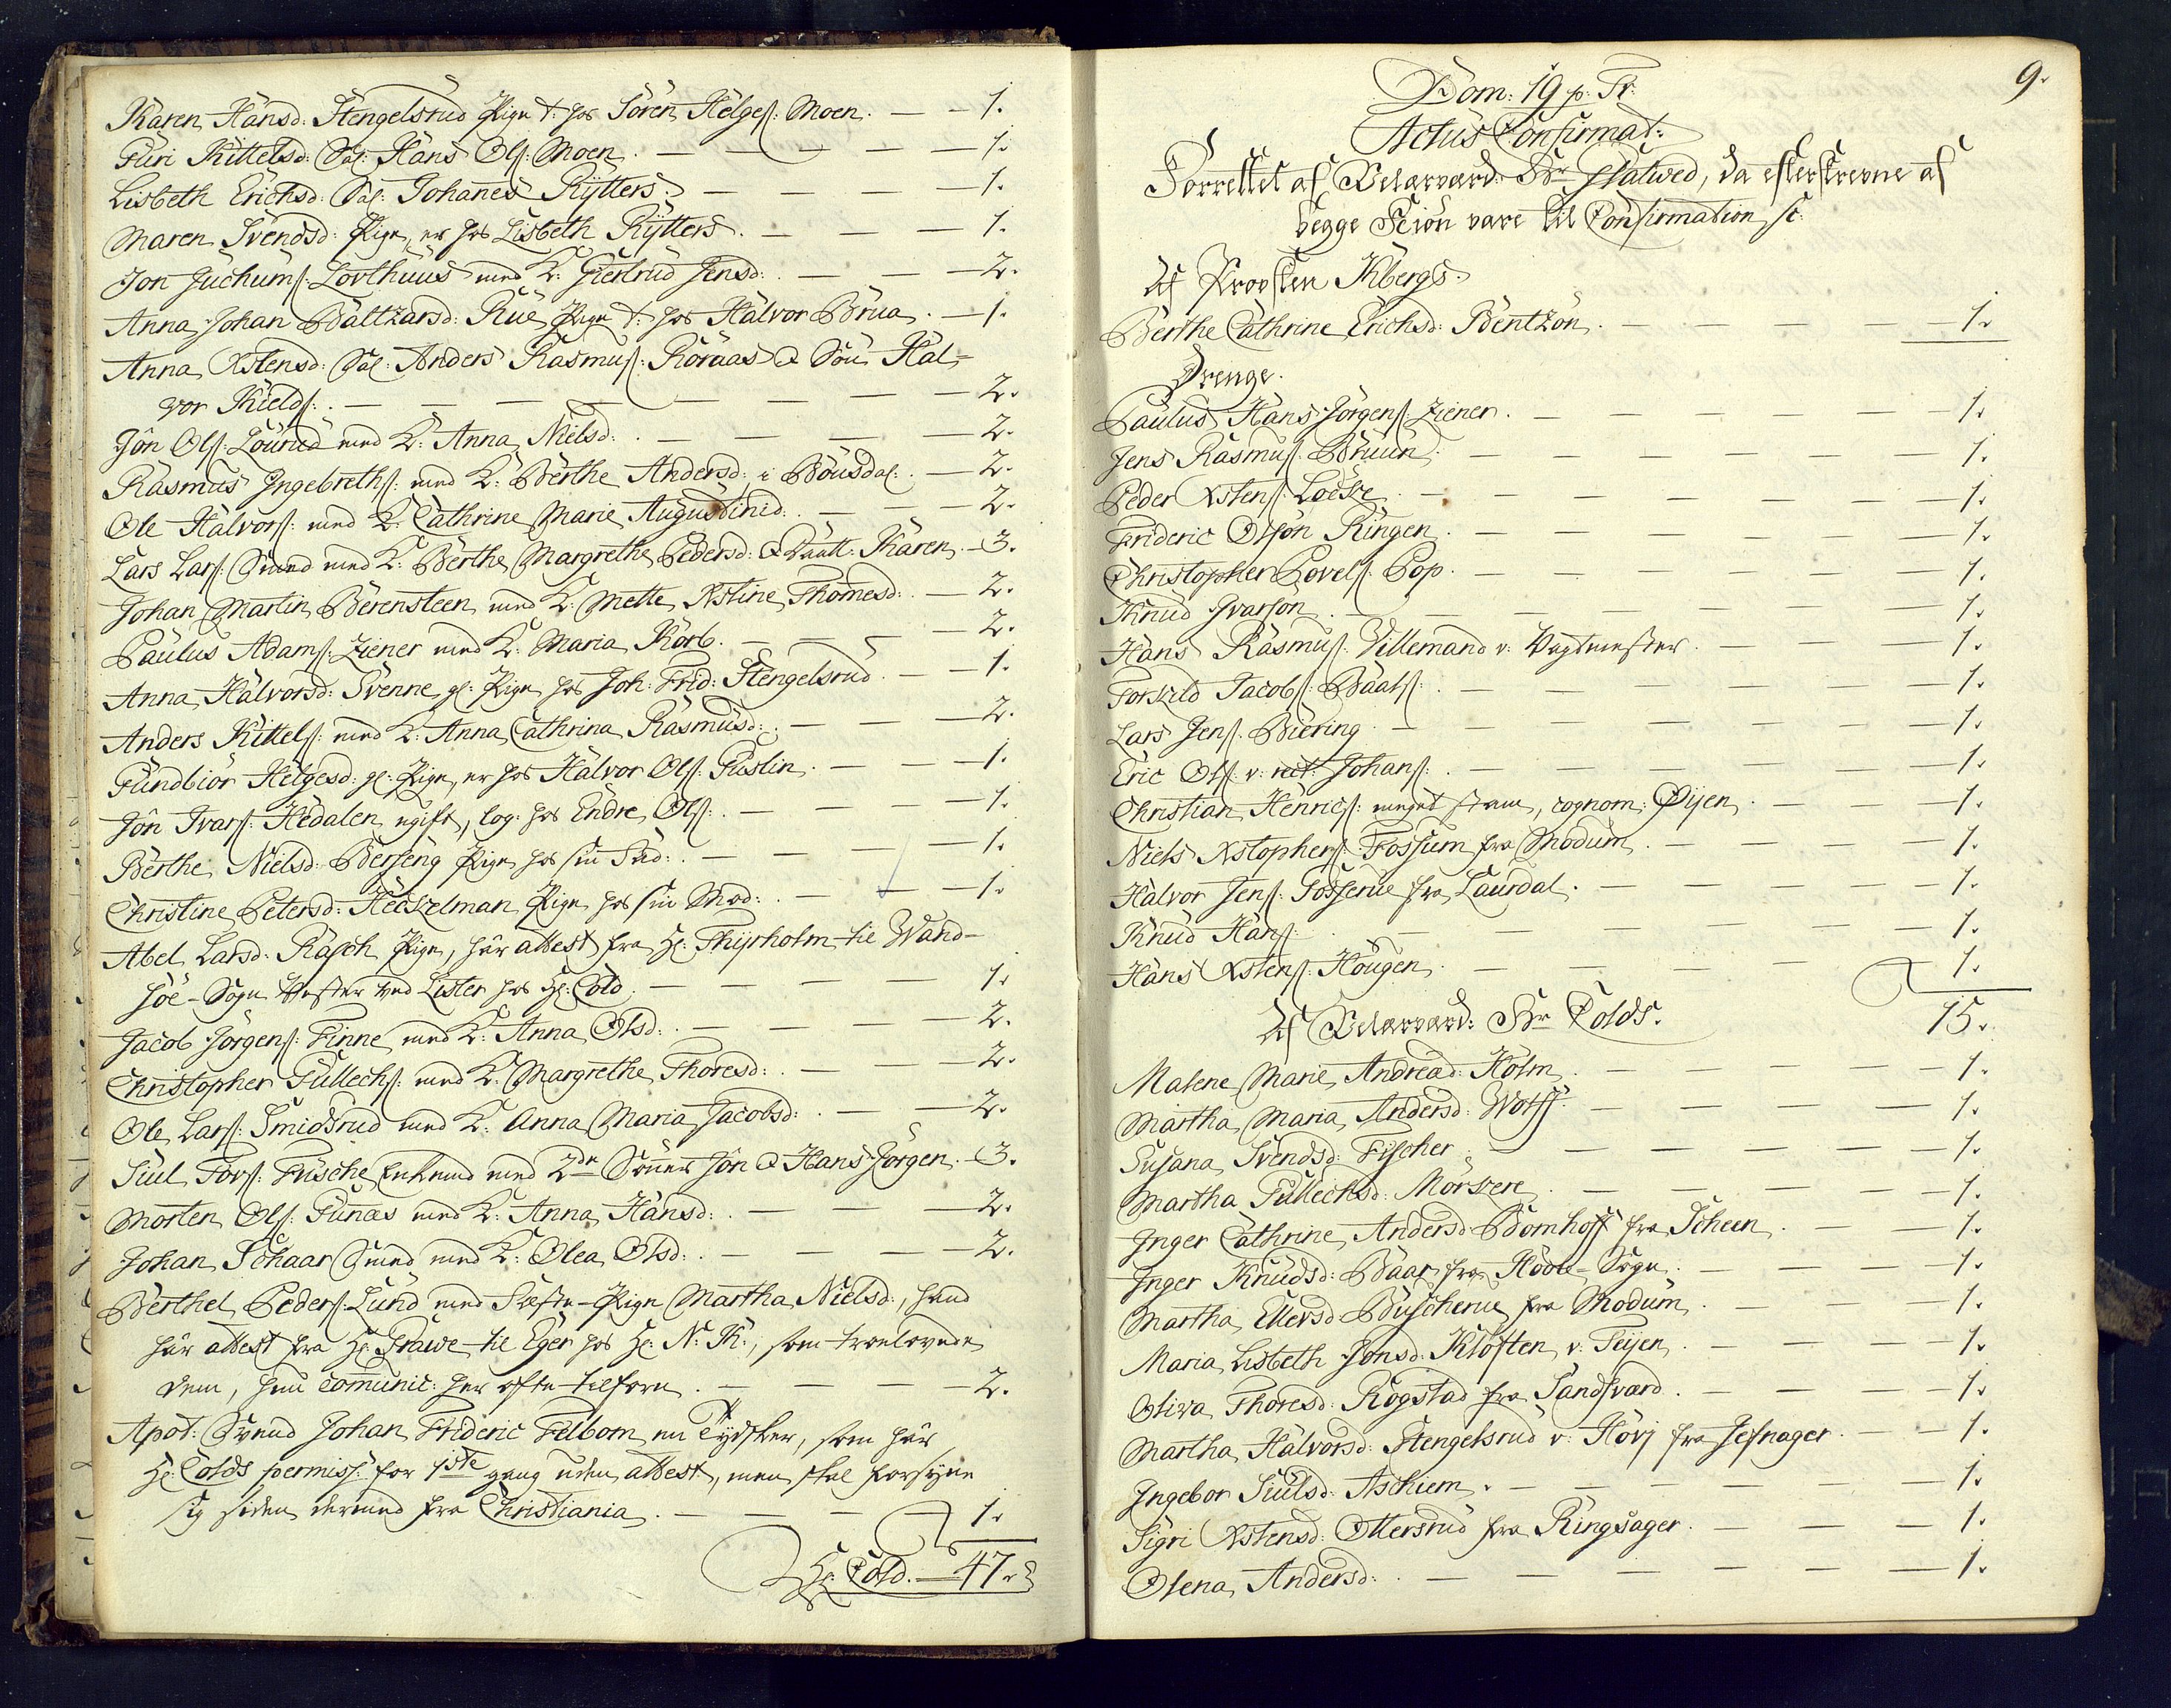 Karen Hansd: Stengelsrud Pige t: hos Sören Helgeſ: Moen. — 1.
Guri Kittelsd: Sal: Hans Olſ: Moen. — — — — — 1.
Lisbeth Erichsd: Sal: Johanes Rytters. — — — 1.
Maren Svendsd: Pige, er hos Lisbeth Rytters. — — — 1.
Jon Juchumſ: Lovthuus med K: Giertrud Jensd: . — — — 2.
Anna Johan Baltzarsd: Rue Pige t: hos Halvor Brua. — 1.
Anna Xstensd: Sal: Anders Rasmuſ: Röraas & Sön Hal=
vor Kieldſ: . — — — — — — — 2.
Jön Olſ: Lourud med K: Anna Nielsd: . — — — — 2.
Rasmus Ingebrethſ: med K: Berthe Andersd: i Bousdal: . — 2.
Ole Halvorſ: med K: Cathrine Marie Augustinid: . — — — 2.
Lars Larſ: Smed med K: Berthe Margrethe Pedersd: & Daatt: Karen. — 3.
Johan Martin Berensteen med K: Mette Xstine Thomesd: . — 2.
Paulus Adamſ: Ziener med K: Maria Korb. — — — 2.
Anna Halvorsd: Svenne gl: Pige hos Joh: Frid: Stengelsrud. — 1.
Anders Kittelſ: med K: Anna Cathrina Rasmusd: . — — — 2.
Gundbiör Helgesd: gl: Pige, er hos Halvor Olſ: Puslin. — — — 1.
Jön Ivarſ: Hedalen ugift, log: hos Endre Olſ: . — — — — 1.
Berthe Nielsd: Berseng Pige hos sin Fad: . — — — — 1.
Christine Petersd: Heckelman Pige hos sin Mod: . — — — 1.
Abel Larsd: Rasch Pige, har attest fra Hr: Thyrholm til Wand-
söe-Sogn Vester ved Lister hos Hr: Cold. — — — — 1.
Jacob Jörgenſ: Finne med K: Anna Olsd: . — — — — 2.
Christopher Gullechſ: med K: Margrethe Thoresd: . — — — 2.
Ole Larſ: Smidsrud med K: Anna Maria Jacobsd: . — — 2.
Siul Torſ: Fusche Enkemd med 2de Sönner Jön & Hans Jörgen. — 3.
Morten Olſ: Funæs med K: Anna Hansd: . — — — 2.
Johan Schaar Smed med K: Olea Olsd: . — — — — 2.
Berthel Pederſ: Lund med Fæste-Pige Martha Nielsd:, hand
har attest fra Hr: Grawe til Eger hos Hr: N: K:, som troelovede
dem, hun comunic: her ofte tilforn. — — — — 2.
Apot: Svend Johan Frideric Felbom en Tydsker, som har
Hr: Colds permiss: for 1ste gang uden attest, men skal forsyne
sig siden dermed fra Christiania. — — — — 1.
Hr: Cold. — 47.
9.
Dom: 19 p: Tr:
Actus Confirmat:
Forrettet af Velærværd: Hr Flatwed, da efterskrevne af
begge Kiön vare til Confirmation sc:
Af Provsten Kbergs.
Berthe Cathrine Erichsd: Bentzön. — — — — — 1.
Drenge.
Paulus Hans Jörgenſ: Ziener. — — — — — 1.
Jens Rasmuſ: Bruun. — — — — — 1.
Peder Xstenſ: Löcke. — — — — — 1.
Frideric Olsön Ringen. — — — — — 1.
Christopher Povelſ: Pop. — — — — — 1.
Knud Ivarsön. — — — — — 1.
Hans Rasmuſ: Villemand v: Vagtmester. — — — 1.
Torkild Jacobſ: Baalſ: . — — — — — 1.
Lars Jenſ: Biering. — — — — — 1.
Eric Olſ: v: rect: Johanſ: . — — — — — 1.
Christian Henricſ: meget stam, cognom: Öijen. — — 1.
Niels Xstopherſ: Fossum fra Modum. — — — — 1.
Halvor Jenſ: Fosserue fra Laurdal. — — — — 1.
Knud Hanſ: . — — — — — 1.
Hans Xstenſ: Hougen. — — — — — 1.
15.
Af Velærværd: Hr Colds.
Malene Marie Andread: Holm. — — — — — 1.
Martha Maria Andersd: Wolff. — — — — — 1.
Susana Svendsd: Fischer. — — — — — 1.
Martha Gullechsd: Mörkere. — — — — — 1.
Inger Cathrine Andersd: Bomhoff fra Scheen. — — 1.
Inger Knudsd: Baar fra Hoole-Sogn. — — — — 1.
Martha Ellevsd: Buscherue fra Modum. — — — — 1.
Maria Lisbeth Jonsd: Klöften v: Teijen. — — — — 1.
Oliva Thoresd: Rogstad fra Sandsværd. — — — — 1.
Martha Halvorsd: Stengelsrud v: Hovj fra Jefnager. — — 1.
Ingebor Siulsd: Aschiem. — — — — — 1.
Sigri Xstensd: Ottersrud fra Ringsager. — — — — 1.
Olena Andersd: . — — — — — 1.